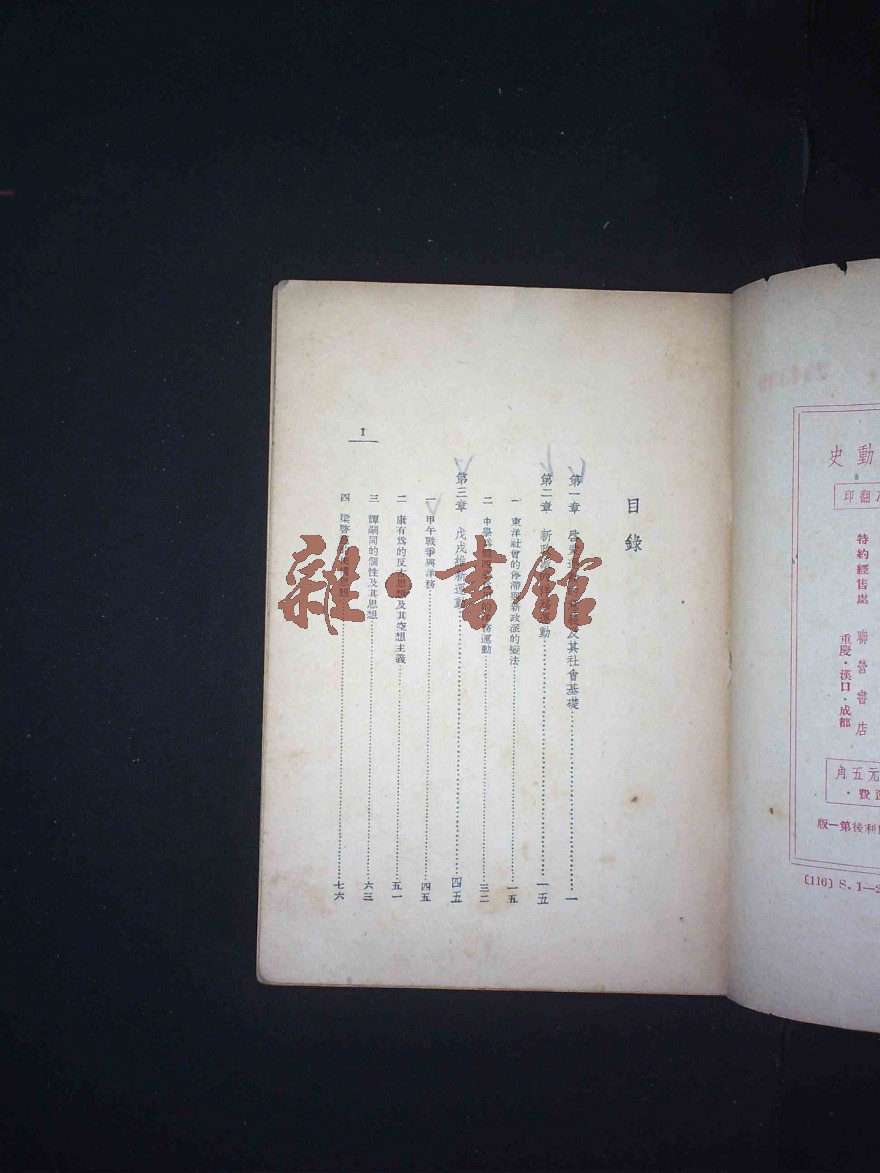 史動
印翻
特約經售處
聯營書店
重慶·漢口·成都
角五元
·費
版一第後利
[116] S. 1—2
目錄
第一章 及其社會基礎……一
第二章 新政 動……一五
一 東洋社會的停滯與新政派的變法……一五
二 中學 務運動……三二
第三章 戊戌維新運動……四五
一 甲午戰爭與洋務……四五
二 康有爲的反古思想及其空想主義……五一
三 譚嗣同的個性及其思想……六三
四 梁啓 思想……七六
1
雜·書館